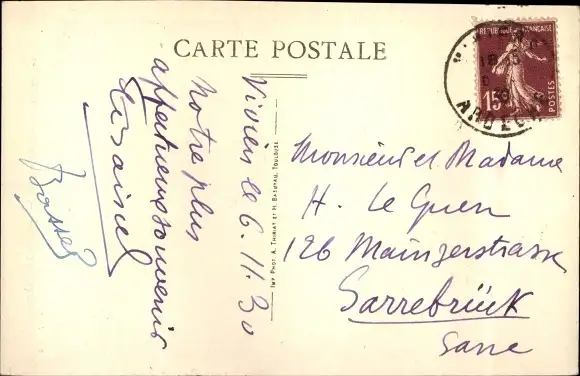 CARTE POSTALE
REPUBLIQUE FRANÇAISE
15
POSTES
ARDECHE
Viviers le 6.11.30
Notre plus
affectueux souvenir
IMP. PHOT. A. THIRIAT ET H. BASUYAU, TOULOUSE
Monsieur et Madame
H. Le Guen
126 Mainzerstrasse
Sarrebrück
Sarre